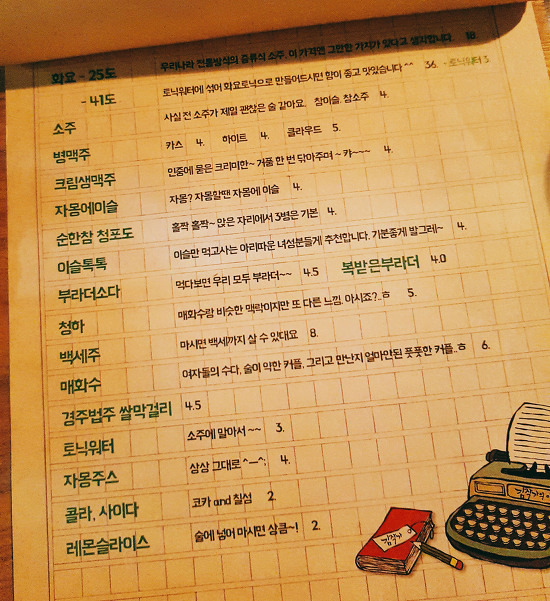 화요 - 25도 우리나라 전통방식의 증류식 소주. 이 가격엔 그만한 가치가 있다고 생각합니다. 18.
- 41도 토닉워터에 섞어 화요토닉으로 만들어드시면 향이 좋고 맛있습니다 ^^ 36. - 토닉워터 3.
소주 사실 전 소주가 제일 괜찮은 술 같아요. 참이슬, 참소주 4.
병맥주 카스 4. 하이트 4. 클라우드 5.
크림생맥주 인중에 묻은 크리미한~ 거품 한 번 닦아주며 ~ 캬~~~ 4.
자몽에이슬 자몽? 자몽할땐 자몽에 이슬 4.
순한참 청포도 홀짝 홀짝~ 앉은 자리에서 3병은 기본 4.
이슬톡톡 이슬만 먹고사는 아리따운 녀성분들게 추천합니다. 기분좋게 발그레~ 4.
부라더소다 먹다보면 우리 모두 부라더~~ 4.5 복받은부라더 4.0
청하 매화수랑 비슷한 맥락이지만 또 다른 느낌. 아시죠?..ㅎ 5.
백세주 마시면 백세까지 살 수 있대요 8.
매화수 여자들의 수다, 술이 약한 커플, 그리고 만난지 얼마안된 풋풋한 커플..ㅎ 6.
경주법주 쌀막걸리 4.5
토닉워터 소주에 말아서 ~~ 3.
자몽주스 상상 그대로 ^ㅡ^; 4.
콜라, 사이다 코카 and 칠성 2.
레몬슬라이스 술에 넣어 마시면 상큼~! 2.
김작가
김작가